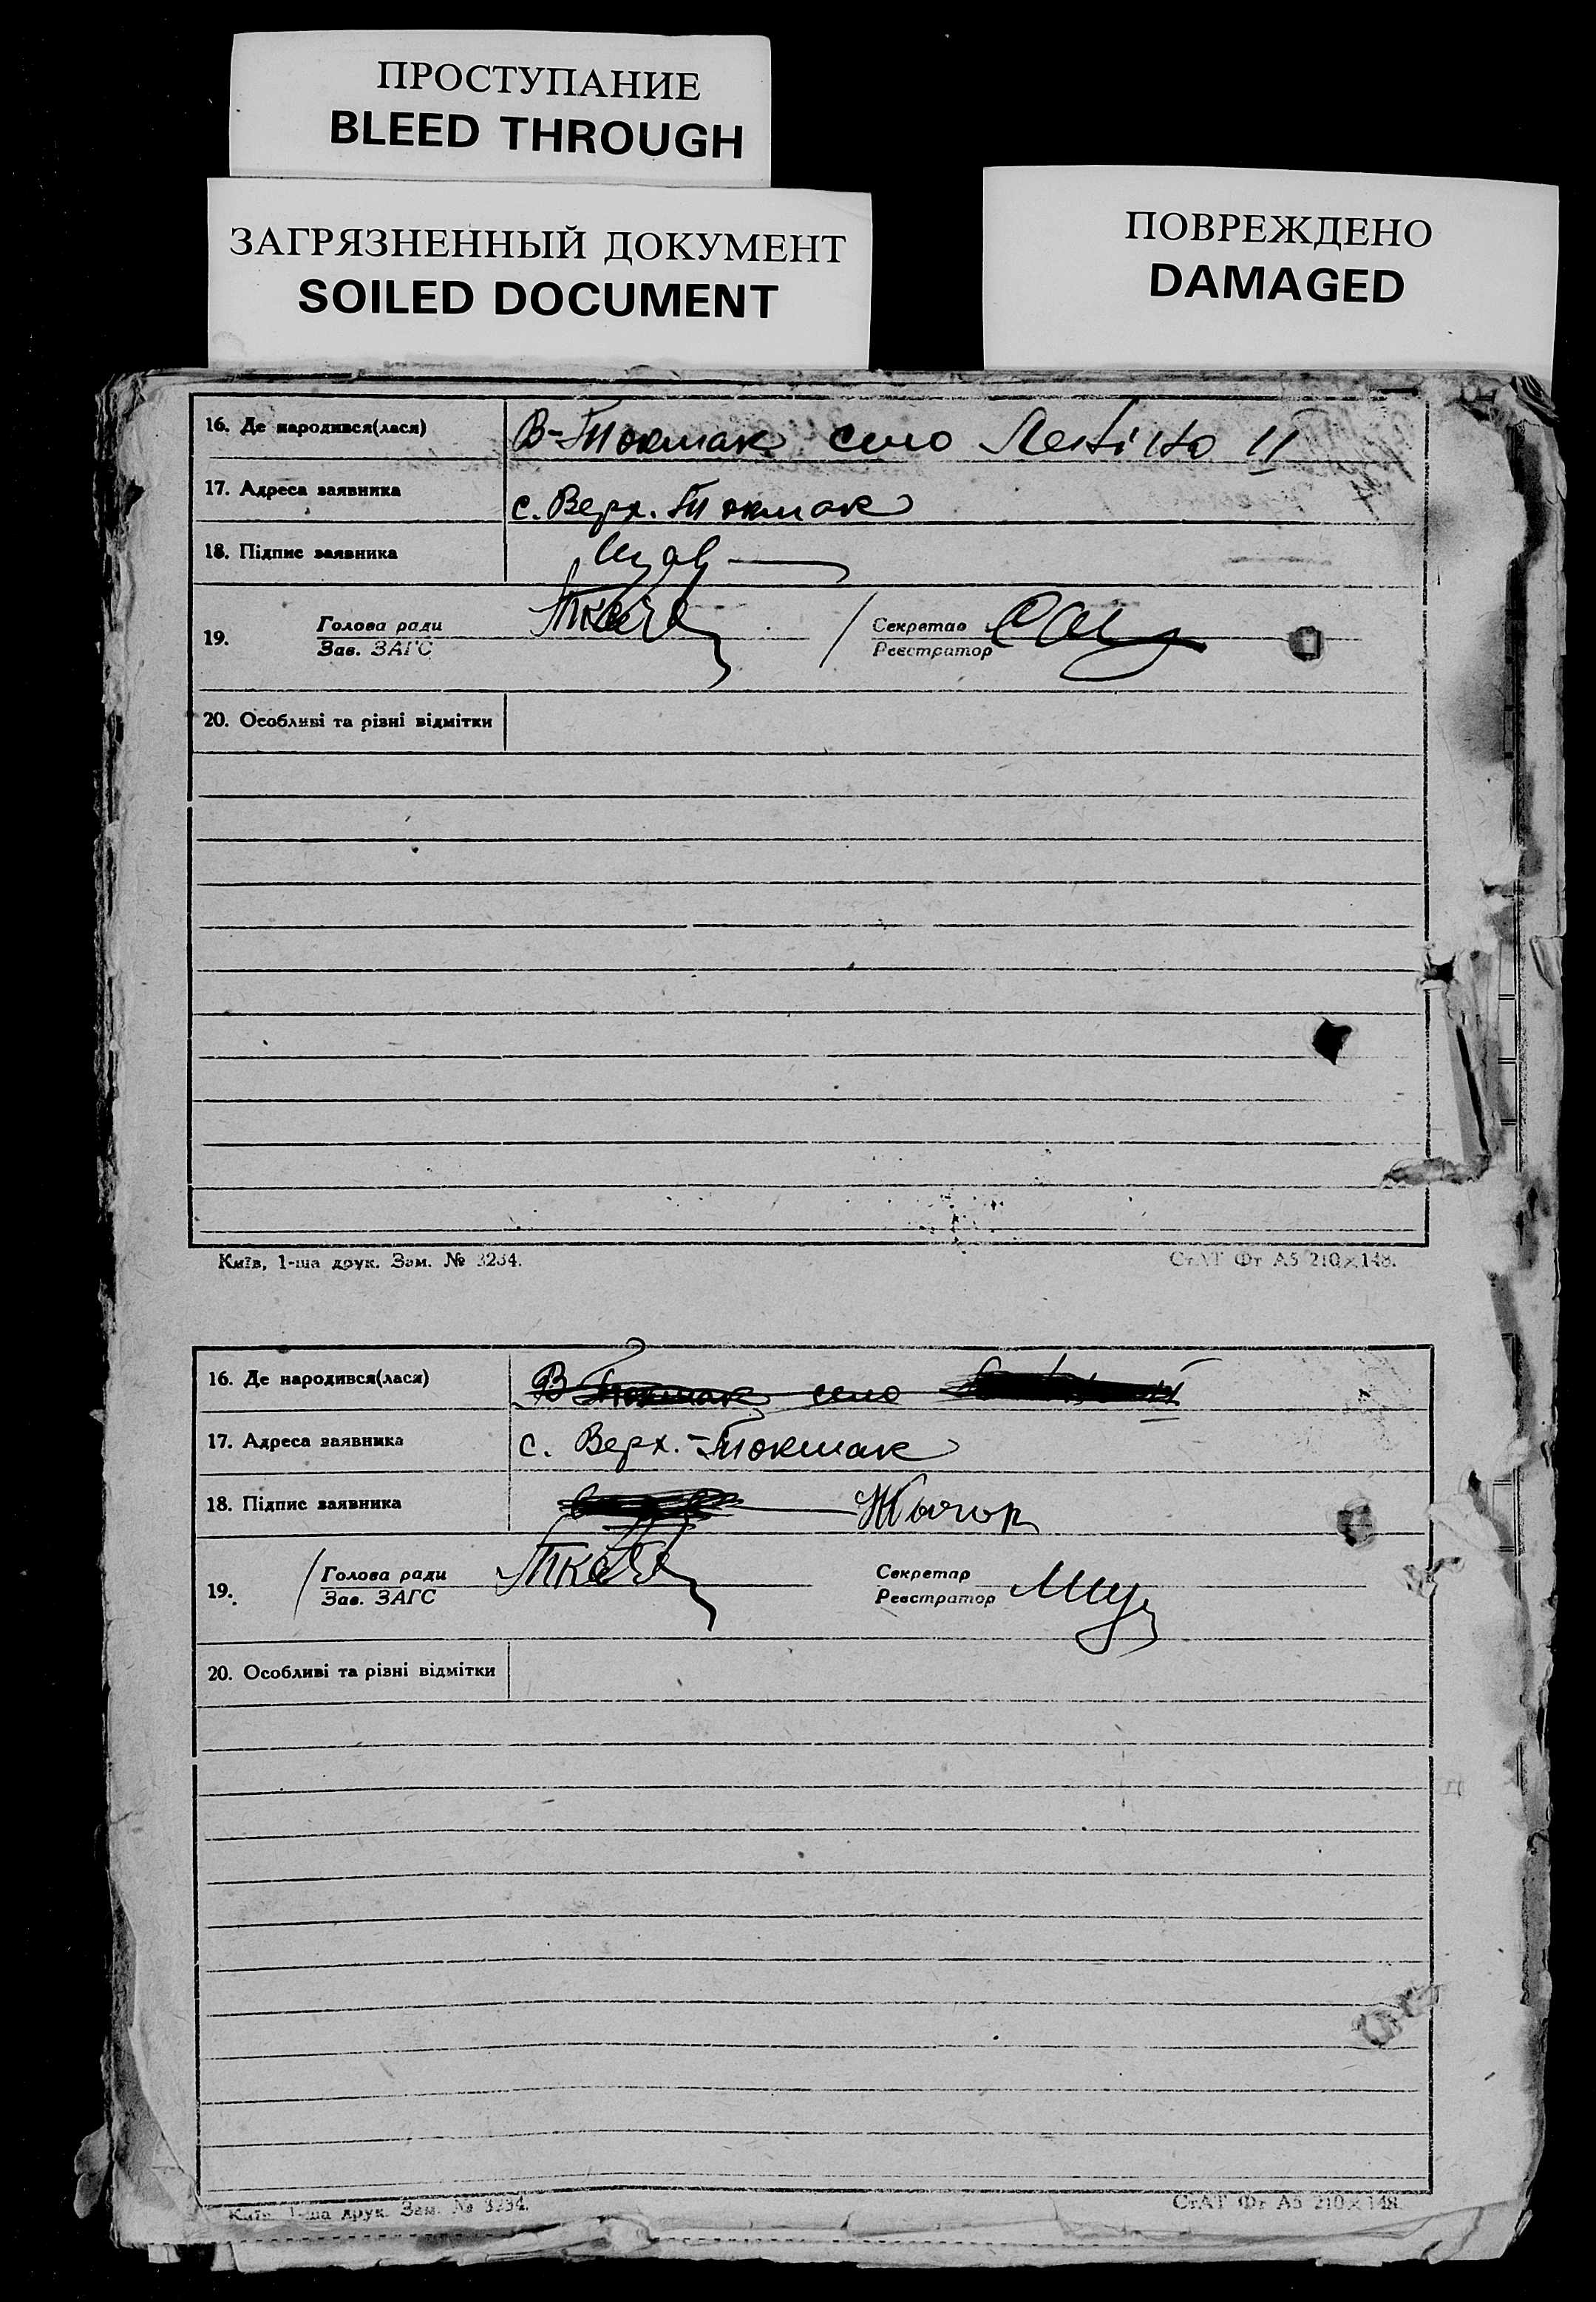 ПРОСТУПАНИЕ
BLEED THROUGH
ЗАГРЯЗНЕННЫЙ ДОКУМЕНТ
SOILED DOCUMENT
ПОВРЕЖДЕНО
DAMAGED
16. Де народився(лася) В-Токмак село II
17. Адреса заявника с. Верх. Токмак
18. Підпис заявника
19. Голова ради Секретар
Зав. ЗАГС Реєстратор
20. Особливі та різні відмітки
Київ, 1-ша друк. Зам. № 3234. СтАТ Фт А5 210×148.
16. Де народився(лася) В Токмак село
17. Адреса заявника с. Верх.-Токмак
18. Підпис заявника
19. Голова ради Секретар
Зав. ЗАГС Реєстратор
20. Особливі та різні відмітки
Київ, 1-ша друк. Зам. № 3234. СтАТ Фт А5 210×148.